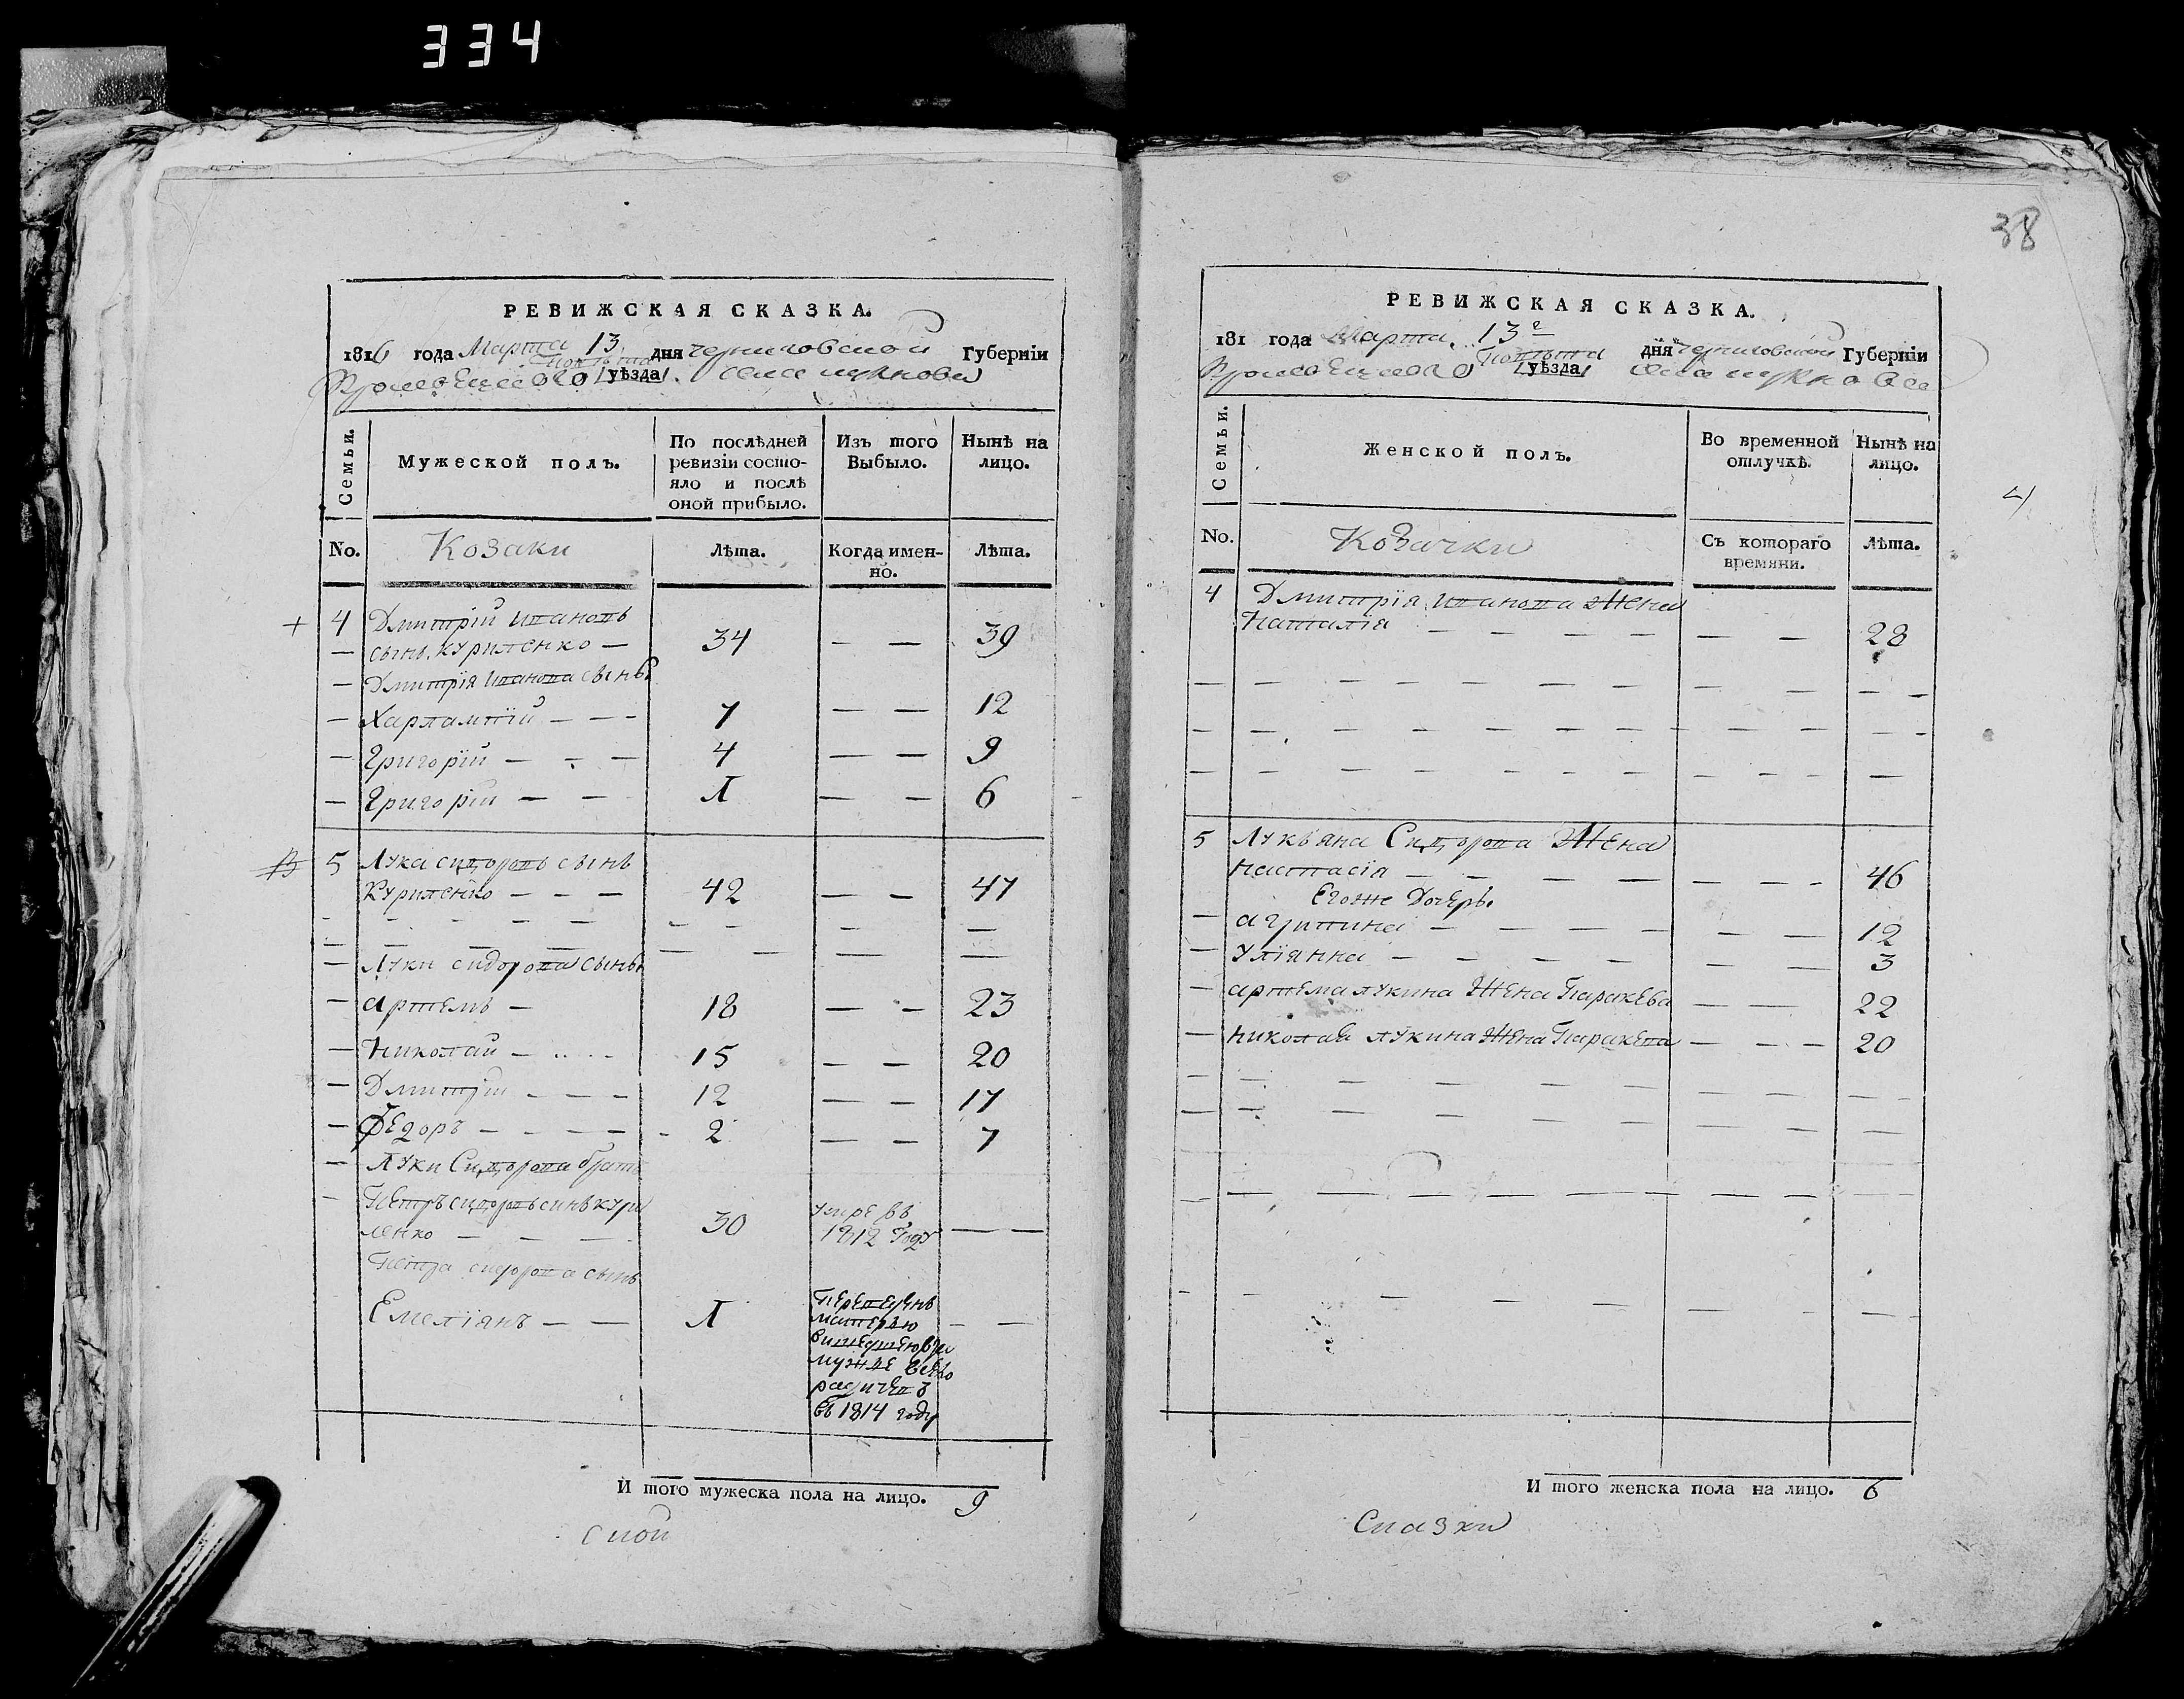 334
РЕВИЖСКАЯ СКАЗКА.
1816 года Марта 13 дня Черниговской Губерніи
повѣта
уѣзда
Семьи. Мужеской полъ. По послѣдней ревизіи состо- Изъ того Выбыло. Нынѣ на лицо.
яло и послѣ
оной прибыло.
No. Козаки Лѣта. Когда имен- Лѣта.
но.
4 Дмитрій Ивановъ
сынъ Куриленко — 34 — — 39
— Дмитрія Иванова сынъ
— Харлампій — — — 7 — — 12
— Григорій — — — 4 — — 9
— Григорій — — Л — — 6
5 Лука Сидоровъ сынъ
Куриленко — — — 42 — — 47
— Луки Сидорова сынъ
— Артемъ — 18 — — 23
— Николай — 15 — — 20
— Дмитрій — — — 12 — — 17
— Федоръ — — — — 2 — — 7
— Луки Сидорова братъ
— Петръ Сидоровъ синъ Кури
ленко — — — 30 умре въ
1812 Году — —
Петра Сидорова сынъ
Емеліянъ — — Л — —
матерью
въ 1814 году
И того мужеска пола на лицо. 9
38
РЕВИЖСКАЯ СКАЗКА.
181 года Марта 13 дня Черниговской Губерніи
повѣта
уѣзда
Семьи. Женской полъ. Во временной Нынѣ на
отлучкѣ. лицо.
No. Козачки Съ котораго Лѣта.
времяни.
4 Дмитрія Иванова Жена
Наталія — — — — — — 28
5 Лукъяна Сидорова Жена
Настасія — — — — — — — 46
Егоже Дочерь.
— Агрипина — — — — — — 12
— Уліянна — — — — — — 3
— Артема Лукина Жена Параксева — — 22
— Николая Лукина Жена Параксева — — — 20
И того женска пола на лицо. 6
Сказки